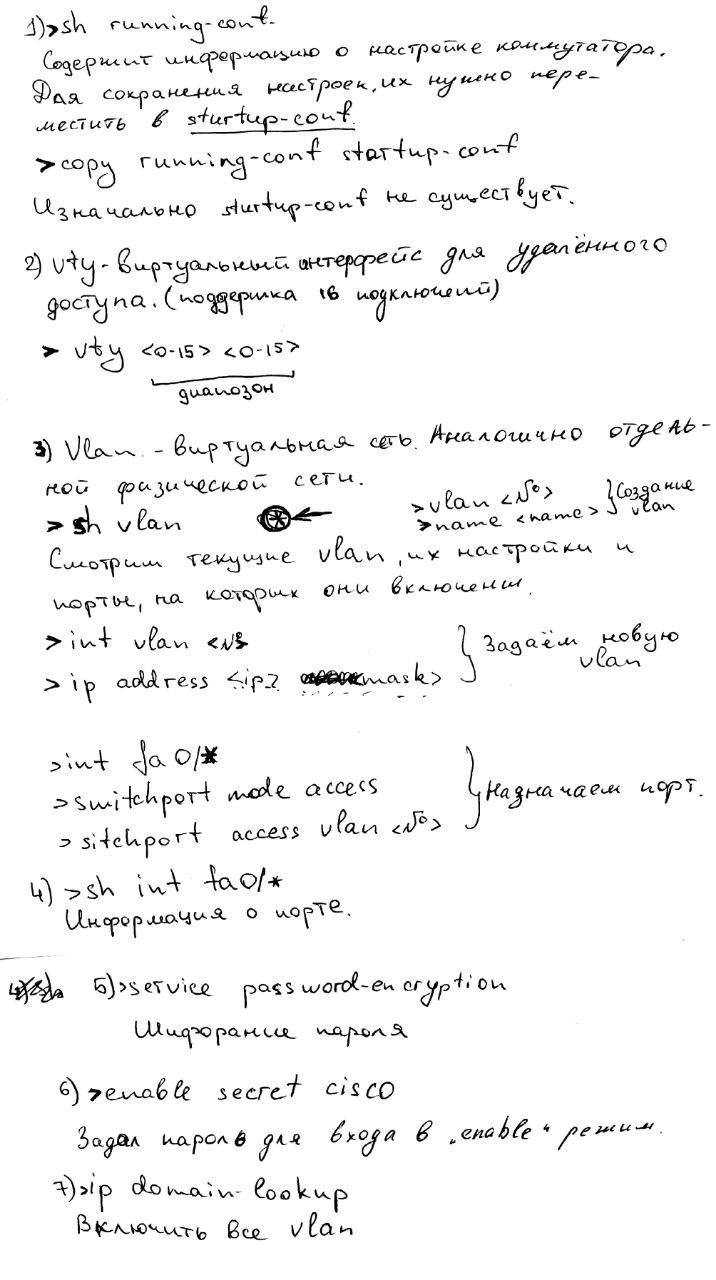 1) >sh running-conf.
Содержит информацию о настройке коммутатора.
Для сохранения настроек, их нужно пере-
местить в sturtup-conf.
>copy running-conf startup-conf
Изначально sturtup-conf не существует.
2) vty - виртуальный интерфейс для удалённого
доступа. (поддержка 16 подключений)
> vty <0-15> <0-15>
диапозон
3) Vlan. - виртуальная сеть. Аналогично отдель-
ной физической сети.
> sh vlan
>vlan <№>
>name <name>
Создание
vlan
Смотрим текущие vlan, их настройки и
порты, на которых они включены.
>int vlan <№>
>ip address <ip> mask>
Задаём новую
vlan
>int fa 0/*
>switchport mode access
>sitchport access vlan <№>
Назначаем порт.
4) >sh int fa0/*
Информация о порте.
5) >service password-encryption
Шифорание пароля
6) >enable secret cisco
Задал пароль для входа в „enable“ режим.
7) >ip domain-lookup
Включить все vlan